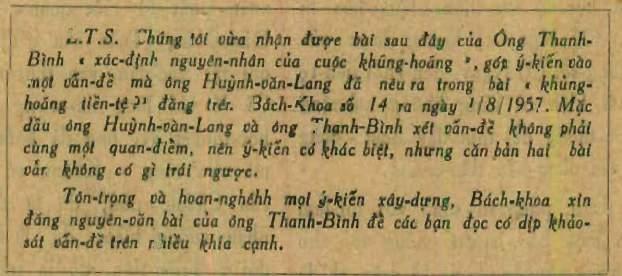 L.T.S. Chúng tôi vừa nhận được bài sau đây của Ông Thanh-
Bình « xác-định nguyên-nhân của cuộc khủng-hoảng », góp ý-kiến vào
một vấn-đề mà ông Huỳnh-văn-Lang đã nêu ra trong bài « khủng-
hoảng tiền-tệ ?» đăng trên Bách-Khoa số 14 ra ngày 1/8/1957. Mặc
dầu ông Huỳnh-văn-Lang và ông Thanh-Bình xét vấn-đề không phải
cùng một quan-điểm, nên ý-kiến có khác biệt, nhưng căn bản hai bài
vẫn không có gì trái ngược.
Tôn-trọng và hoan-nghênh mọi ý-kiến xây-dựng, Bách-khoa xin
đăng nguyên-văn bài của ông Thanh-Bình để các bạn đọc có dịp khảo-
sát vấn-đề trên nhiều khía cạnh.